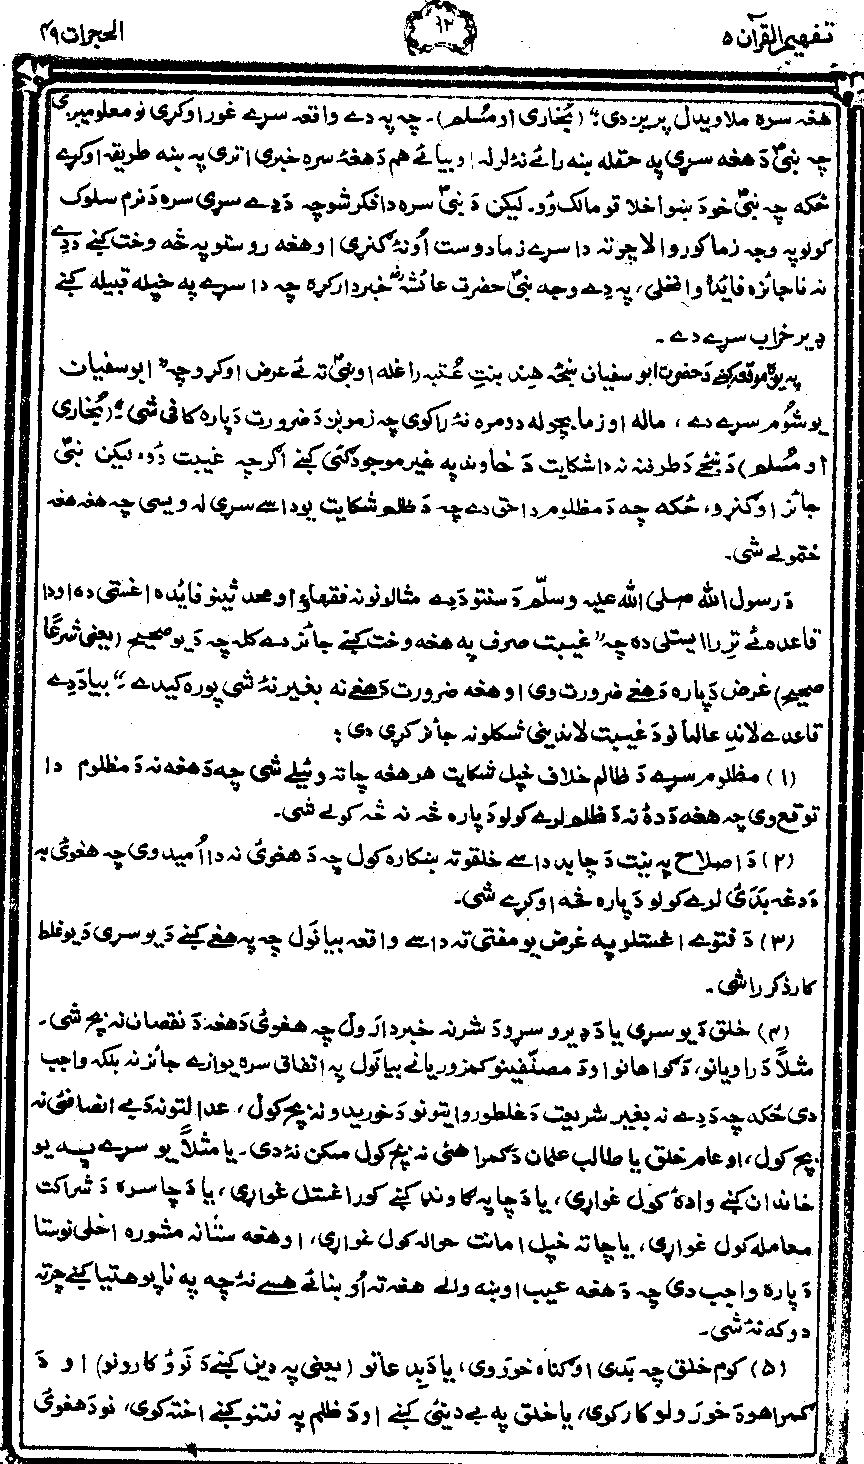 تفهیم القرآن ۵
۹۲
الحجرات ۴۹
هغه سره ملاویدل پریږدی؟" (بُخاری او مُسلم)۔ چه په دے واقعه سړے غور اوکړی نو معلومیږی
چه نبیؐ دَ هغه سړی په حقله ښه رائے نۀ لرله او بیائے هم دَ هغهٔ سره خبری اتری په ښه طریقه اوکړے
ځکه چه نبیؐ خود ښو اخلا قو مالک وُو۔ لیکن دَ نبیؐ سره دا فکر شو چه دَ دے سړی سره دَ نرم سلوک
کولو په وجه زما کور والا چرته دا سړے زما دوست اُو نۀ ګنړی او هغه روستو په څه وخت کښے دَ دے
نه ناجائزه فایٔده وا نخلی، په دے وجه نبیؐ حضرت عائشهؓ خبردار کړه چه دا سړے په خپله قبیله کښے
ډیر خراب سړے دے۔
په یوه موقعه کښے دَ حضرت ابو سفیان ښځه هِند بنتِ عُتبه راغله او نبیؐ ته ئے عرض اوکړو چه" ابو سفیان
یو شُوم سړے دے، ماله او زما بچو له دومره نۀ راکوی چه زمونږ دَ ضرورت دَ پاره کافی شی؟" (بُخاری
او مُسلم) دَ ښځے دَ طرفنه نه دا شکایت دَ خاوند په غیر موجودګئی کښے اګرچه غیبت وُوه لیکن نبیؐ
جائز اوګنړو، ځکه چه دَ مظلوم دا حق دے چه دَ ظلم شکایت یو داسے سړی له ویسی چه هغه هغه
ختمولے شی۔
دَ رسول الله صلی الله علیه وسلّم دَ سنتو دَ دے مثالونو نه فقهاؤ او محدثینو فایٔده اغستی ده او دا
قاعده ئے تِرا ایستلی ده چه" غیبت صرف په هغه وخت کښے جائز دے کله چه دَ یو صحیح (یعنی شرعًا
صحیح) غرض دَ پاره دَ هغے ضرورت وی او هغه ضرورت دَ هغے نه بغیر نۀ شی پوره کیدے؟" بیا دَ دے
قاعدے لاندِ عالمانو دَ غیبت لاندینی شکلونه جائز کړی دی:
(۱) مظلوم سړے دَ ظالم خلاف خپل شکایت هر هغه چاته وئیلے شی چه دَ هغه نه دَ مظلوم دا
توقع وی چه هغه دَ دۀ نه دَ ظلم لرے کولو دَ پاره څه نه څه کولے شی۔
(۲) دَ اصلاح په نیت دَ چا بد داسے خلقو ته ښکاره کول چه دَ هغویٔ نه دا اُمید وی چه هغویٔ به
دَ دغه بَدیٔ لرے کولو دَ پاره څه اوکړے شی۔
(۳) دَ فتوے اغستلو په غرض یو مفتی ته داسے واقعه بیانول چه په هغے کښے دَ یو سړی دَ یو غلط
کار ذکر راشی۔
(۴) خلق دَ یو سړی یا دَ ډیرو سړو دَ شر نه خبردارَول چه هغویٔ دَ هغهٔ دَ نقصان نه بچ شی۔
مثلاً دَ راویانو، دَ ګواهانو او دَ مصنّفینو کمزوریانے بیانول په اتفاق سره یوازے جائز نه بلکه واجب
دی ځکه چه دَ دے نه بغیر شریعت دَ غلطو روایتونو دَ خوریدو نه بچ کول، عدالتونه دَ بے انصافئی نه
بچ کول، او عام خلق یا طالب علمان دَ ګمراهئی نه بچ کول ممکن نۀ دی۔ یا مثلاً یو سړے په یو
خاندان کښے وادهٔ کول غواړی، یا دَ چا په ګاونډ کښے کور اغستل غواړی، یا دَ چا سره دَ شراکت
معامله کول غواړی، یا چاته خپل امانت حواله کول غواړی، او هغه ستا نه مشوره اخلی نو ستا
دَ پاره واجب دی چه دَ هغه عیب او ښه والے هغه ته اُو ښائے هسے نۀ چه په ناپوهتیا کښے چرته
دوکه نۀ شی۔
(۵) کوم خلق چه بَدی او ګناه خوروی، یا دَ بدعاتو (یعنی په دین کښے دَ نَوو کارونو) او دَ
ګمراهوۀ خورَولو کار کوی، یا خلق په بے دینئی کښے او دَ ظلم په فتنو کښے اخته کوی، نو دَ هغویٔ